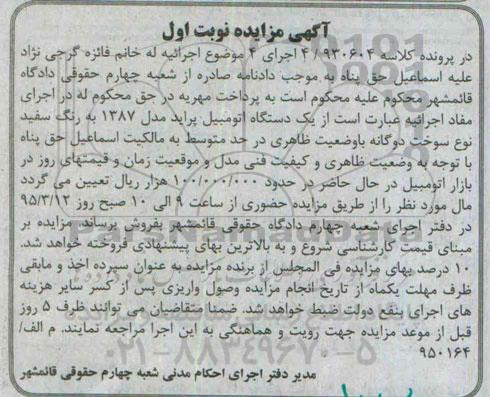 آگهی مزایده نوبت اول
در پرونده کلاسه ۹۳۰۶۰۴ / ۴ اجرای ۴ موضوع اجرائیه له خانم فائزه گرجی نژاد
علیه اسماعیل حق پناه به موجب دادنامه صادره از شعبه چهارم حقوقی دادگاه
قائمشهر محکوم علیه محکوم است به پرداخت مهریه در حق محکوم له در اجرای
مفاد اجرائیه عبارت است از یک دستگاه اتومبیل پراید مدل ۱۳۸۷ به رنگ سفید
نوع سوخت دوگانه باوضعیت ظاهری در حد متوسط به مالکیت اسماعیل حق پناه
با توجه به وضعیت ظاهری و کیفیت فنی مدل و موقعیت زمان و قیمتهای روز در
بازار اتومبیل در حال حاضر در حدود ۱۰۰/۰۰۰/۰۰۰ هزار ریال تعیین می گردد
مال مورد نظر را از طریق مزایده حضوری از ساعت ۹ الی ۱۰ صبح روز ۹۵/۳/۱۲
در دفتر اجرای شعبه چهارم دادگاه حقوقی قائمشهر بفروش برساند. مزایده بر
مبنای قیمت کارشناسی شروع و به بالاترین بهای پیشنهادی فروخته خواهد شد.
۱۰ درصد بهای مزایده فی المجلس از برنده مزایده به عنوان سپرده اخذ و مابقی
ظرف مهلت یکماه از تاریخ انجام مزایده وصول واریزی پس از کسر سایر هزینه
های اجرای بنفع دولت ضبط خواهد شد. ضمنا متقاضیان می توانند ظرف ۵ روز
قبل از موعد مزایده جهت رویت و هماهنگی به این اجرا مراجعه نمایند. م الف/
۹۵۰۱۶۴
۰۲۱-۸۸۳۴۹۶۷۰-۵
مدیر دفتر اجرای احکام مدنی شعبه چهارم حقوقی قائمشهر